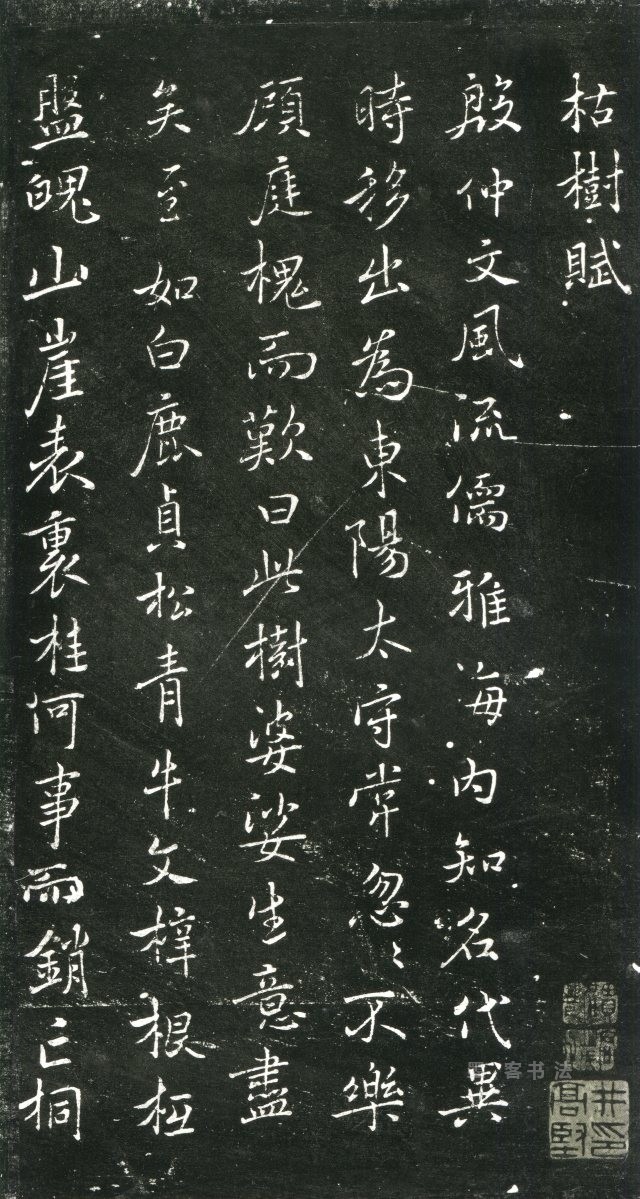 枯樹賦
殷仲文風流儒雅海内知名代異
時移出為東陽太守常忽〻不樂
顧庭槐而歎曰此樹婆娑生意盡
矣至如白鹿貞松青牛文梓根柢
盤魄山崖表裏桂何事而銷亡桐
客书法